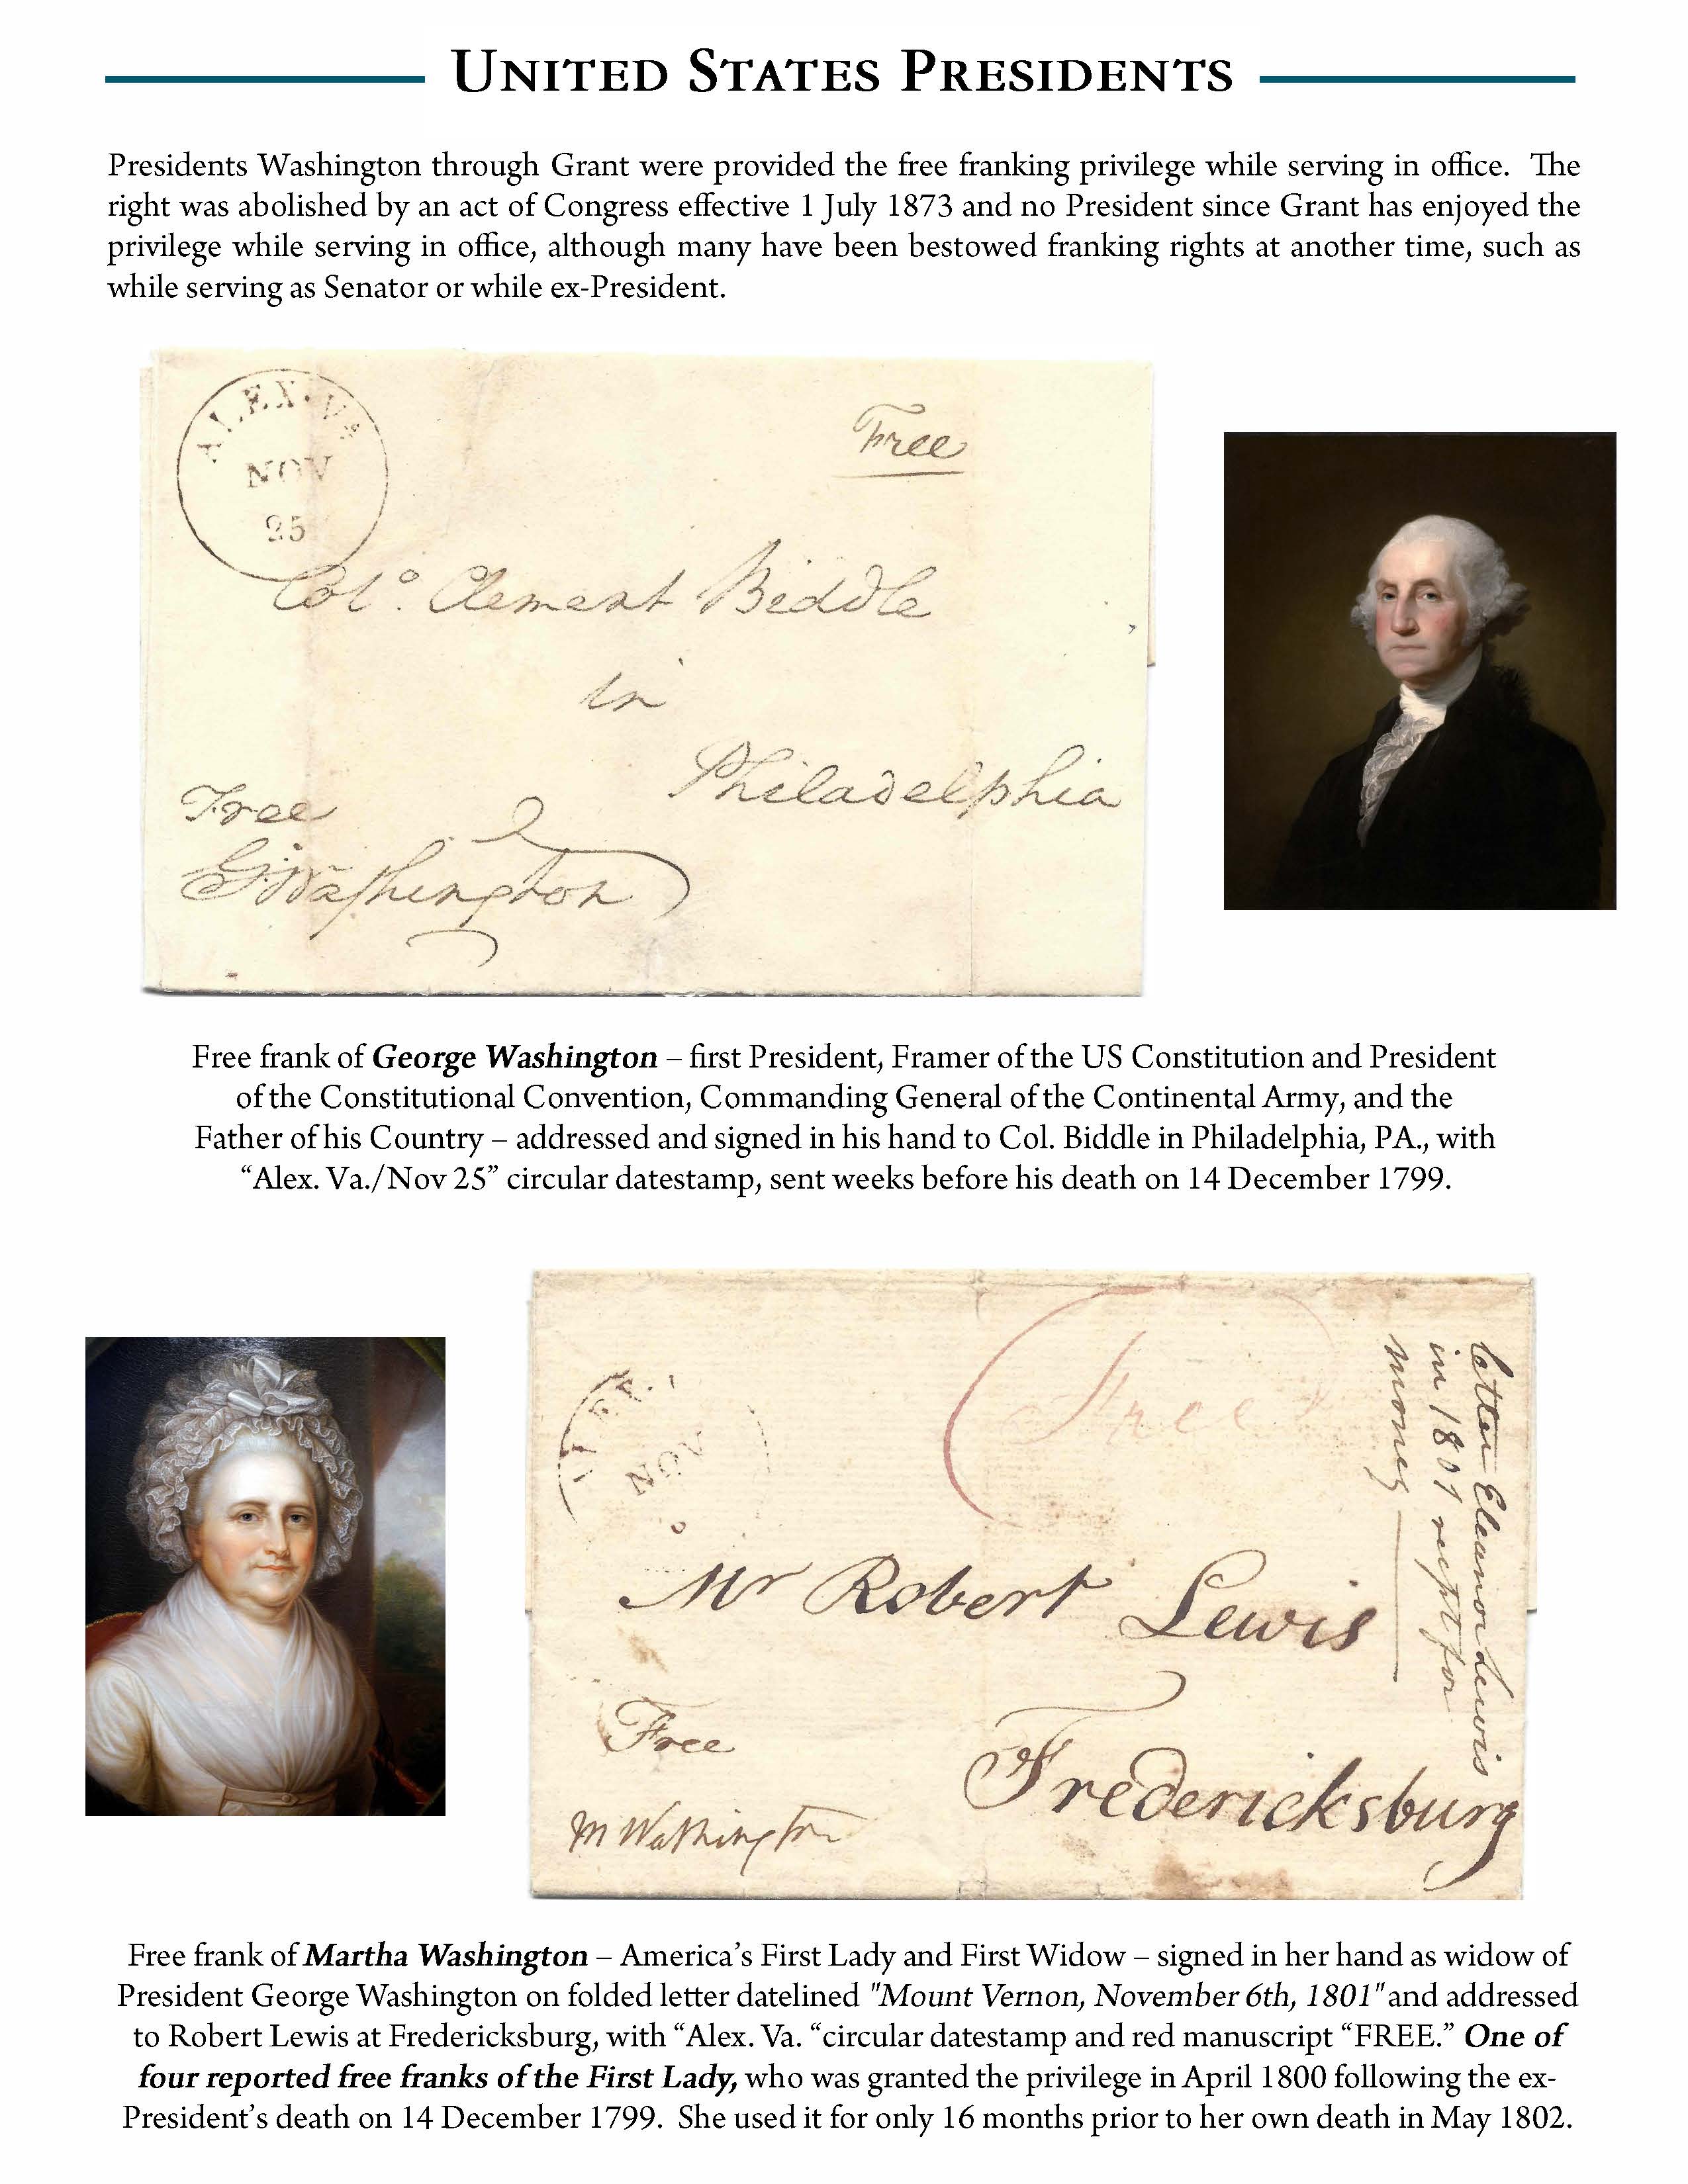 UNITED STATES PRESIDENTS
Presidents Washington through Grant were provided the free franking privilege while serving in office. The
right was abolished by an act of Congress effective 1 July 1873 and no President since Grant has enjoyed the
privilege while serving in office, although many have been bestowed franking rights at another time, such as
while serving as Senator or while ex-President.
ALEX. Va
NOV
25
Free
Colo. Clement Biddle
in
Philadelphia
Free
G Washington
Free frank of George Washington – first President, Framer of the US Constitution and President
of the Constitutional Convention, Commanding General of the Continental Army, and the
Father of his Country – addressed and signed in his hand to Col. Biddle in Philadelphia, PA., with
“Alex. Va./Nov 25” circular datestamp, sent weeks before his death on 14 December 1799.
ALEX.
NOV
Free
letter Eleanor Lewis
in 1801 rec'pt for
money
Mr Robert Lewis
Free
Fredericksburg
M Washington
Free frank of Martha Washington – America’s First Lady and First Widow – signed in her hand as widow of
President George Washington on folded letter datelined "Mount Vernon, November 6th, 1801"and addressed
to Robert Lewis at Fredericksburg, with “Alex. Va. “circular datestamp and red manuscript “FREE.” One of
four reported free franks of the First Lady, who was granted the privilege in April 1800 following the ex-
President’s death on 14 December 1799. She used it for only 16 months prior to her own death in May 1802.